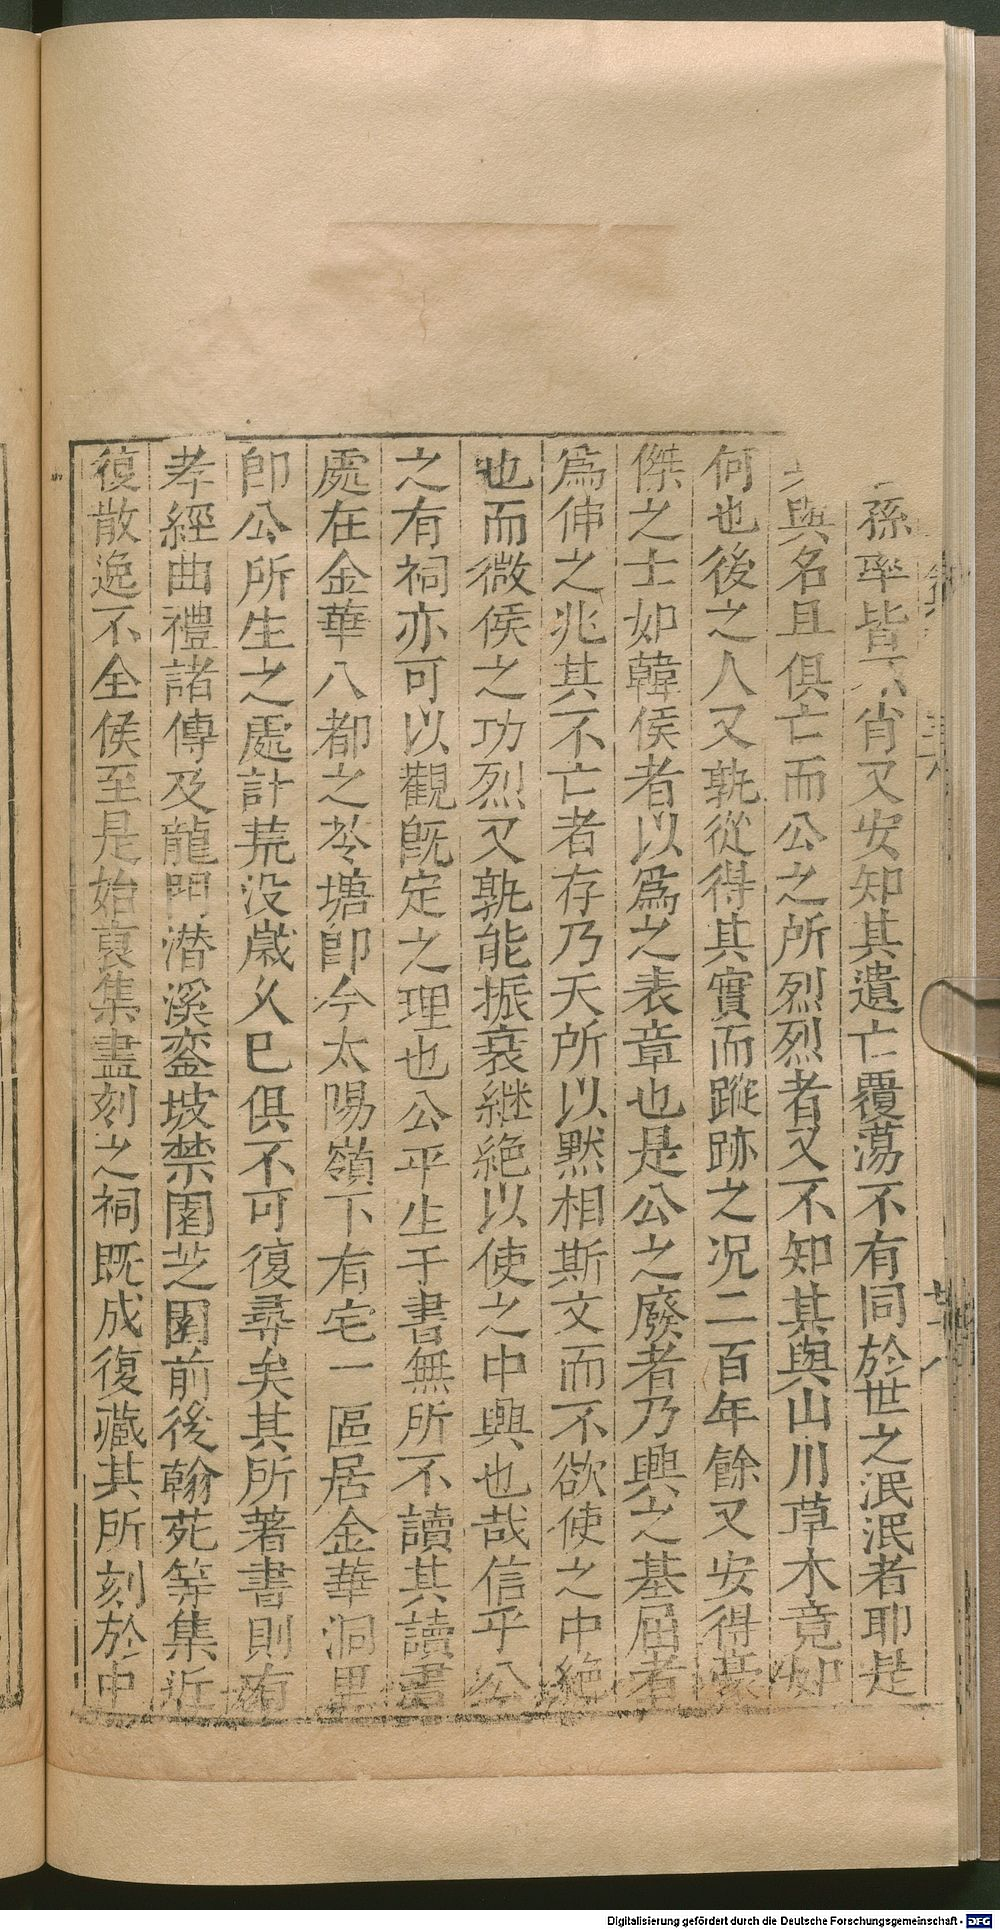 孫率皆不肖又安知其遺亡覆蕩不有同於世之泯泯者耶是
與名且俱亡而公之所烈烈者又不知其與山川草木竟如
何也後之人又孰從得其實而蹤跡之况二百年餘又安得豪
傑之士如韓侯者以爲之表章也是公之廢者乃興之基屈者
爲伸之兆其不亡者存乃天所以黙相斯文而不欲使之中絶
也而微侯之功烈又孰能振衰継絶以使之中興也哉信乎公
之有祠亦可以觀旣定之理也公平生于書無所不讀其讀書
處在金華八都之苓塘卽今太陽嶺下有宅一區居金華洞里
卽公所生之處計荒没歲乆已俱不可復尋矣其所著書則有
孝經曲禮諸傳及龍門潜溪鑾坡禁圍芝園前後翰苑等集近
復散逸不全侯至是始裒集盡刻之祠既成復藏其所刻於中
Digitalisierung gefördert durch die Deutsche Forschungsgemeinschaft - DFG